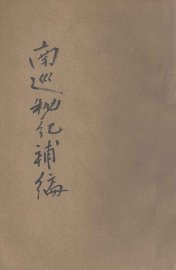 南巡秘紀補編